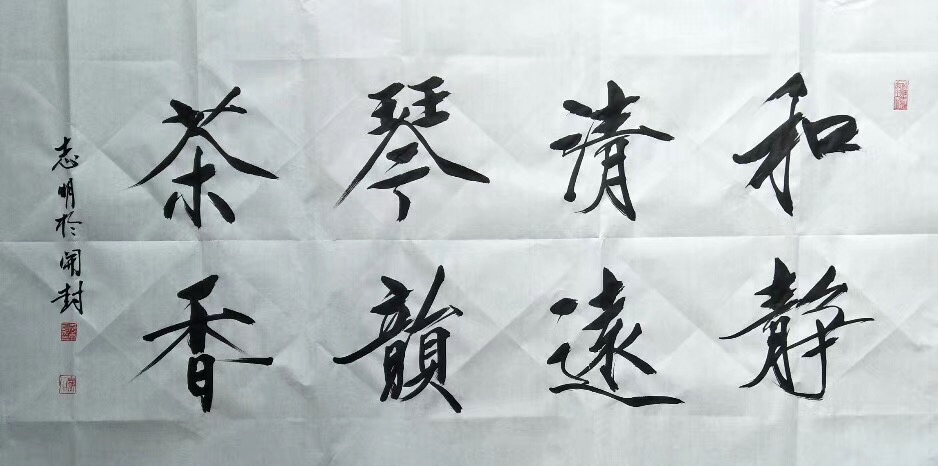 和静
清遠
琴韻
茶香
志明於開封